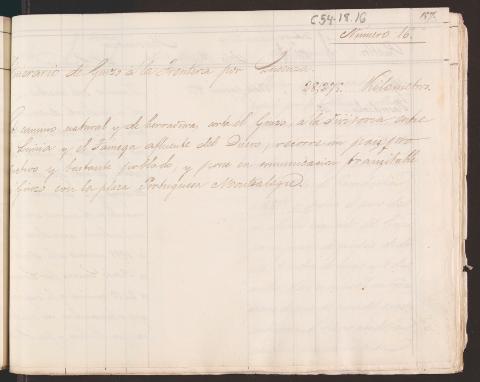 C54-18.16
Número 16.
inerario de Ginzo á la Frontera por
28,275. Kilometros.
camino natural y de herradura, entre el Ginzo, a la divisoria entre
Limia y el Tamega afluente del Duero, recorre un pais pro
ctivo y bastante poblado, y pone en comunicacion tranzitable
Ginzo con la plaza Portuguesa Montealegre.